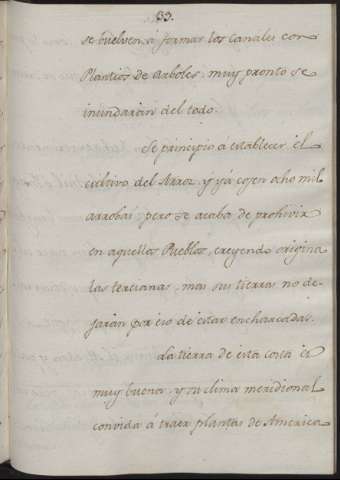 33.
se buelven á formar los canales con
Plantios de Arboles, muy pronto se
inundarán del todo.
Se principio á establecer el
cultivo del Arroz, y yá cojen ocho mil
arrobas, pero se acaba de prohivir
en aquellos Pueblos, creyendo origina
las tercianas, mas sus tierras no de-
jaran por eso de estar encharcadas.
La tierra de esta costa es
muy buena, y su clima meridional
convida á traer plantas de America